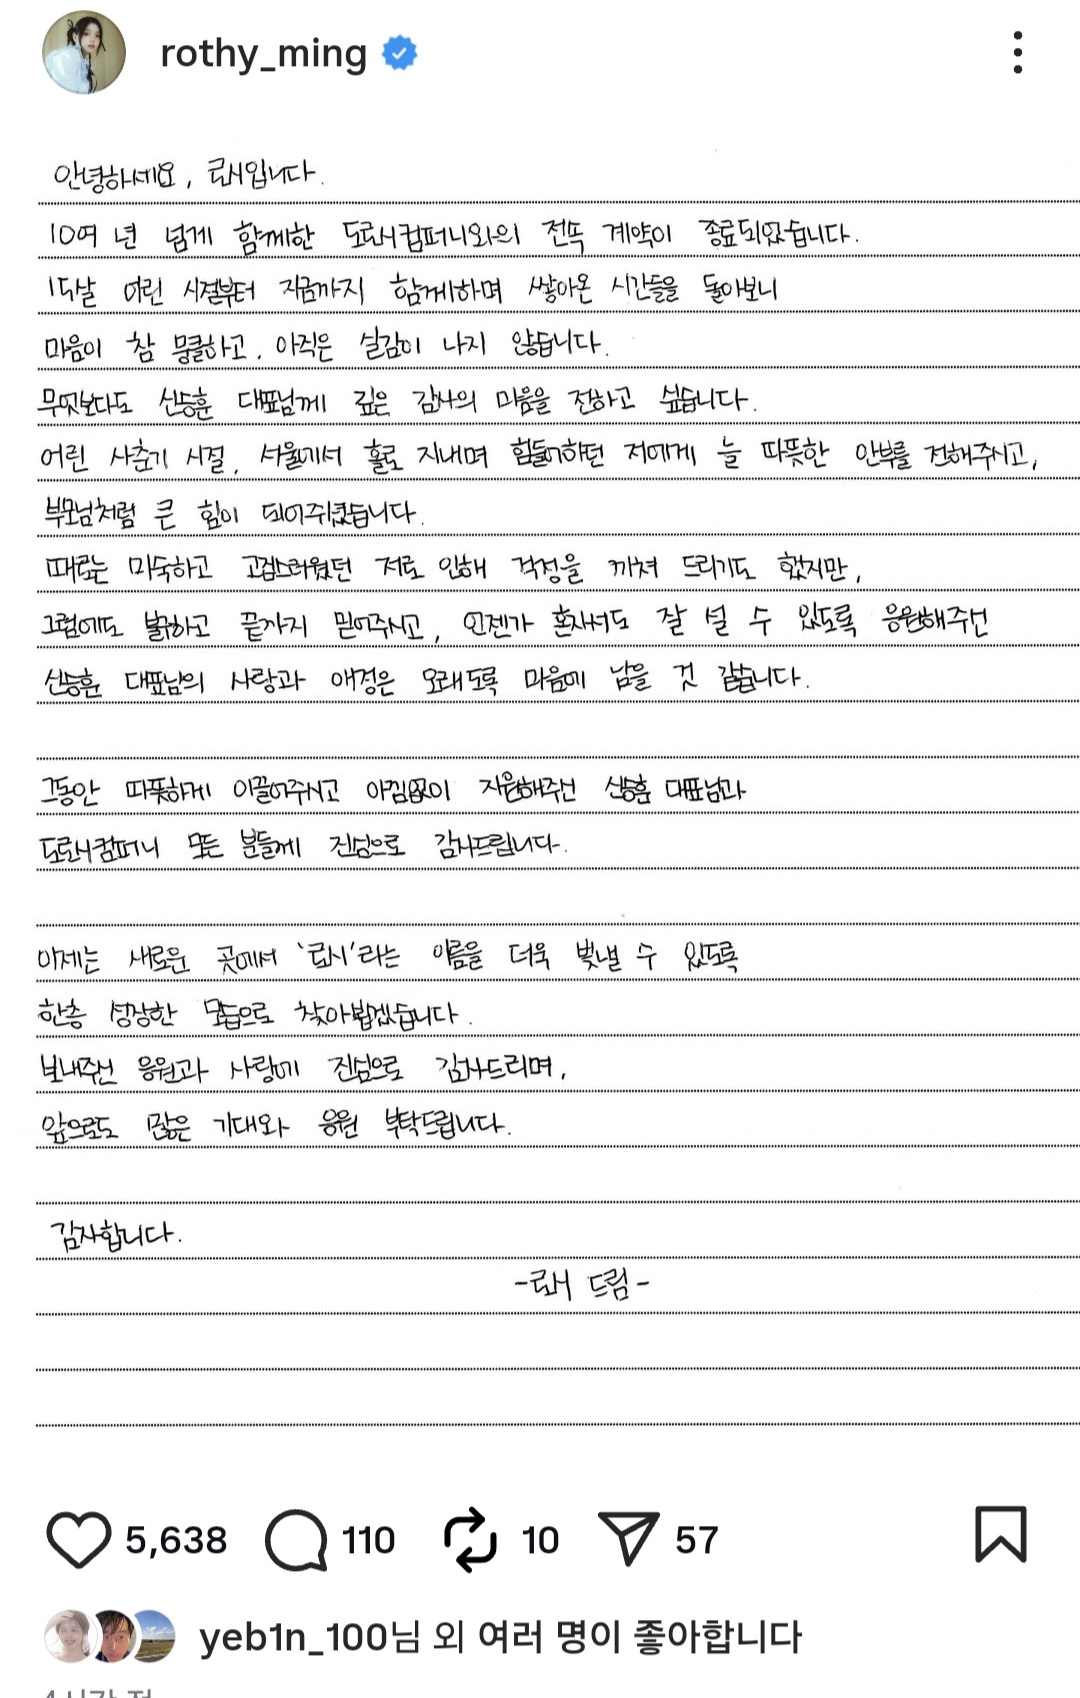 rothy_ming
안녕하세요, 로시입니다.
10여 년 넘게 함께한 도로시컴퍼니와의 전속 계약이 종료되었습니다.
15살 어린 시절부터 지금까지 함께하며 쌓아온 시간들을 돌아보니
마음이 참 뭉클하고, 아직은 실감이 나지 않습니다.
무엇보다도 신승훈 대표님께 깊은 감사의 마음을 전하고 싶습니다.
어린 사춘기 시절, 서울에서 홀로 지내며 힘들어하던 저에게 늘 따뜻한 안부를 전해주시고,
부모님처럼 큰 힘이 되어주셨습니다.
때로는 미숙하고 고집스러웠던 저로 인해 걱정을 끼쳐 드리기도 했지만,
그럼에도 불구하고 끝까지 믿어주시고, 언젠가 혼자서도 잘 설 수 있도록 응원해주신
신승훈 대표님의 사랑과 애정은 오래도록 마음에 남을 것 같습니다.
그동안 따뜻하게 이끌어주시고 아낌없이 지원해주신 신승훈 대표님과
도로시컴퍼니 모든 분들께 진심으로 감사드립니다.
이제는 새로운 곳에서 '로시'라는 이름을 더욱 빛낼 수 있도록
한층 성장한 모습으로 찾아뵙겠습니다.
보내주신 응원과 사랑에 진심으로 감사드리며,
앞으로도 많은 기대와 응원 부탁드립니다.
감사합니다.
-로시 드림-
5,638 110 10 57
yeb1n_100님 외 여러 명이 좋아합니다
4시간 전